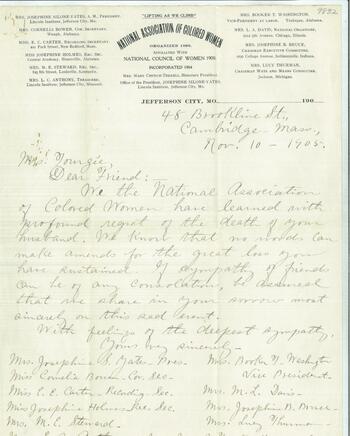 9832
"LIFTING AS WE CLIMB"
NATIONAL ASSOCIATION OF COLORED WOMEN
ORGANIZED 1896.
AFFILIATED WITH
NATIONAL COUNCIL OF WOMEN 1900.
INCORPORATED 1904
MRS. MARY CHURCH TERRELL, Honorary President
Office of the President, JOSEPHINE SILONE YATES,
Lincoln Institute, Jefferson City, Mo.
MRS. JOSEPHINE SILONE YATES, A. M., PRESIDENT.
Lincoln Institute, Jefferson City, Mo.
MISS CORNELIA BOWEN, COR. SECRETARY.
Waugh, Alabama.
MISS E. C. CARTER, RECORDING SECRETARY.
Park Street, New Bedford, Mass.
MISS JOSEPHINE HOLMES, REC. SEC.
Central Academy, Huntsville, Alabama.
MRS. M. E. STEWARD, REC. SEC.
Louisville, Kentucky.
MRS. L. C. ANTHONY, TREASURER.
Lincoln Institute, Jefferson City, Mo.
MRS. BOOKER T. WASHINGTON,
VICE-PRESIDENT AT LARGE. Tuskegee, Alabama.
MRS. L. A. DAVIS, NATIONAL ORGANIZER,
Chicago, Illinois.
MRS. JOSEPHINE B. BRUCE,
CHAIRMAN EXECUTIVE COMMITTEE,
College Avenue, Indianapolis, Indiana.
MRS. LUCY THURMAN,
CHAIRMAN WAYS AND MEANS COMMITTEE,
Jackson, Michigan.
JEFFERSON CITY, MO. 190
48 Brookline St.,
Cambridge Mass,
Nov. 10 - 1905.
Mrs. Yourgie,
Dear Friend: —
We the National Association
of Colored Women have learned with
profound regret of the death of your
husband. We know that no words can
make amends for the great loss you
have sustained. If sympathy of friends
can be of any consolation, be assured
that we share in your sorrow most
sincerely on this sad event.
With feelings of the deepest sympathy,
Yours very sincerely -
Mrs. Josephine S. Yates - Pres.
Mrs. Booker T. Washington
Vice President.
Miss Cornelia Bowen - Cor. Sec
Miss E. E. Carter - Recording Sec.
Mrs. M. L. Davis -
Miss Josephine Holmes Rec. Sec.
Mrs. Josephine B. Bruce -
Mrs. M. E. Steward -
Mrs. Lucy Thurman -